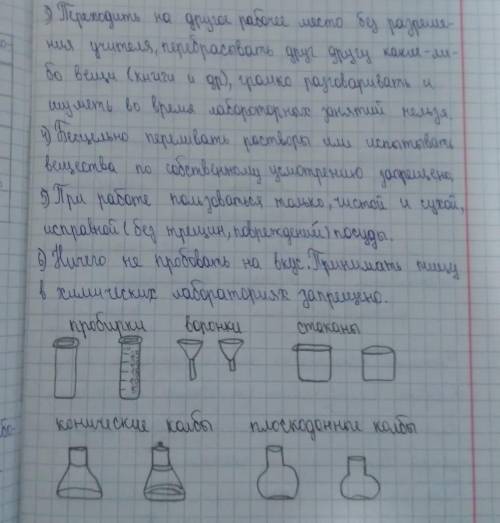 3) Переходить на другое рабочее место без разреше-
ния учителя, перебрасовать друг другу какие-ли-
бо вещи (книги и др), громко разговаривать и
шуметь во время лабораторных занятий нельзя.
4) Бесцельно переливать растворы или испотовать
вещества по собственному усмотрению запрещено,
5) При работе пользоваться только, чистой и сухой,
исправной (без трещин, повреждений) посуды.
6) Ничего не пробовать на вкус. Принимать пищу
в химических лабораториях запрещено.
пробирки воронки стаканы
конические колбы плоскодонные колбы